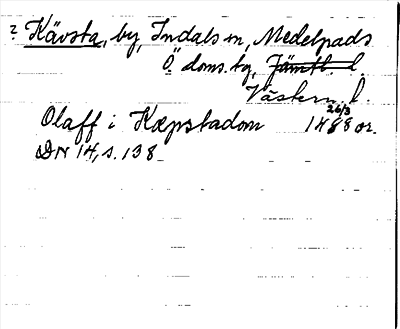 ? Kävsta, by, Indals sn, Medelpads
Ö. doms. tg, Jämtl. l.
Västern. l.
Olaff i Kæpstadom 26/3 1488 or.
DN 14, s. 138